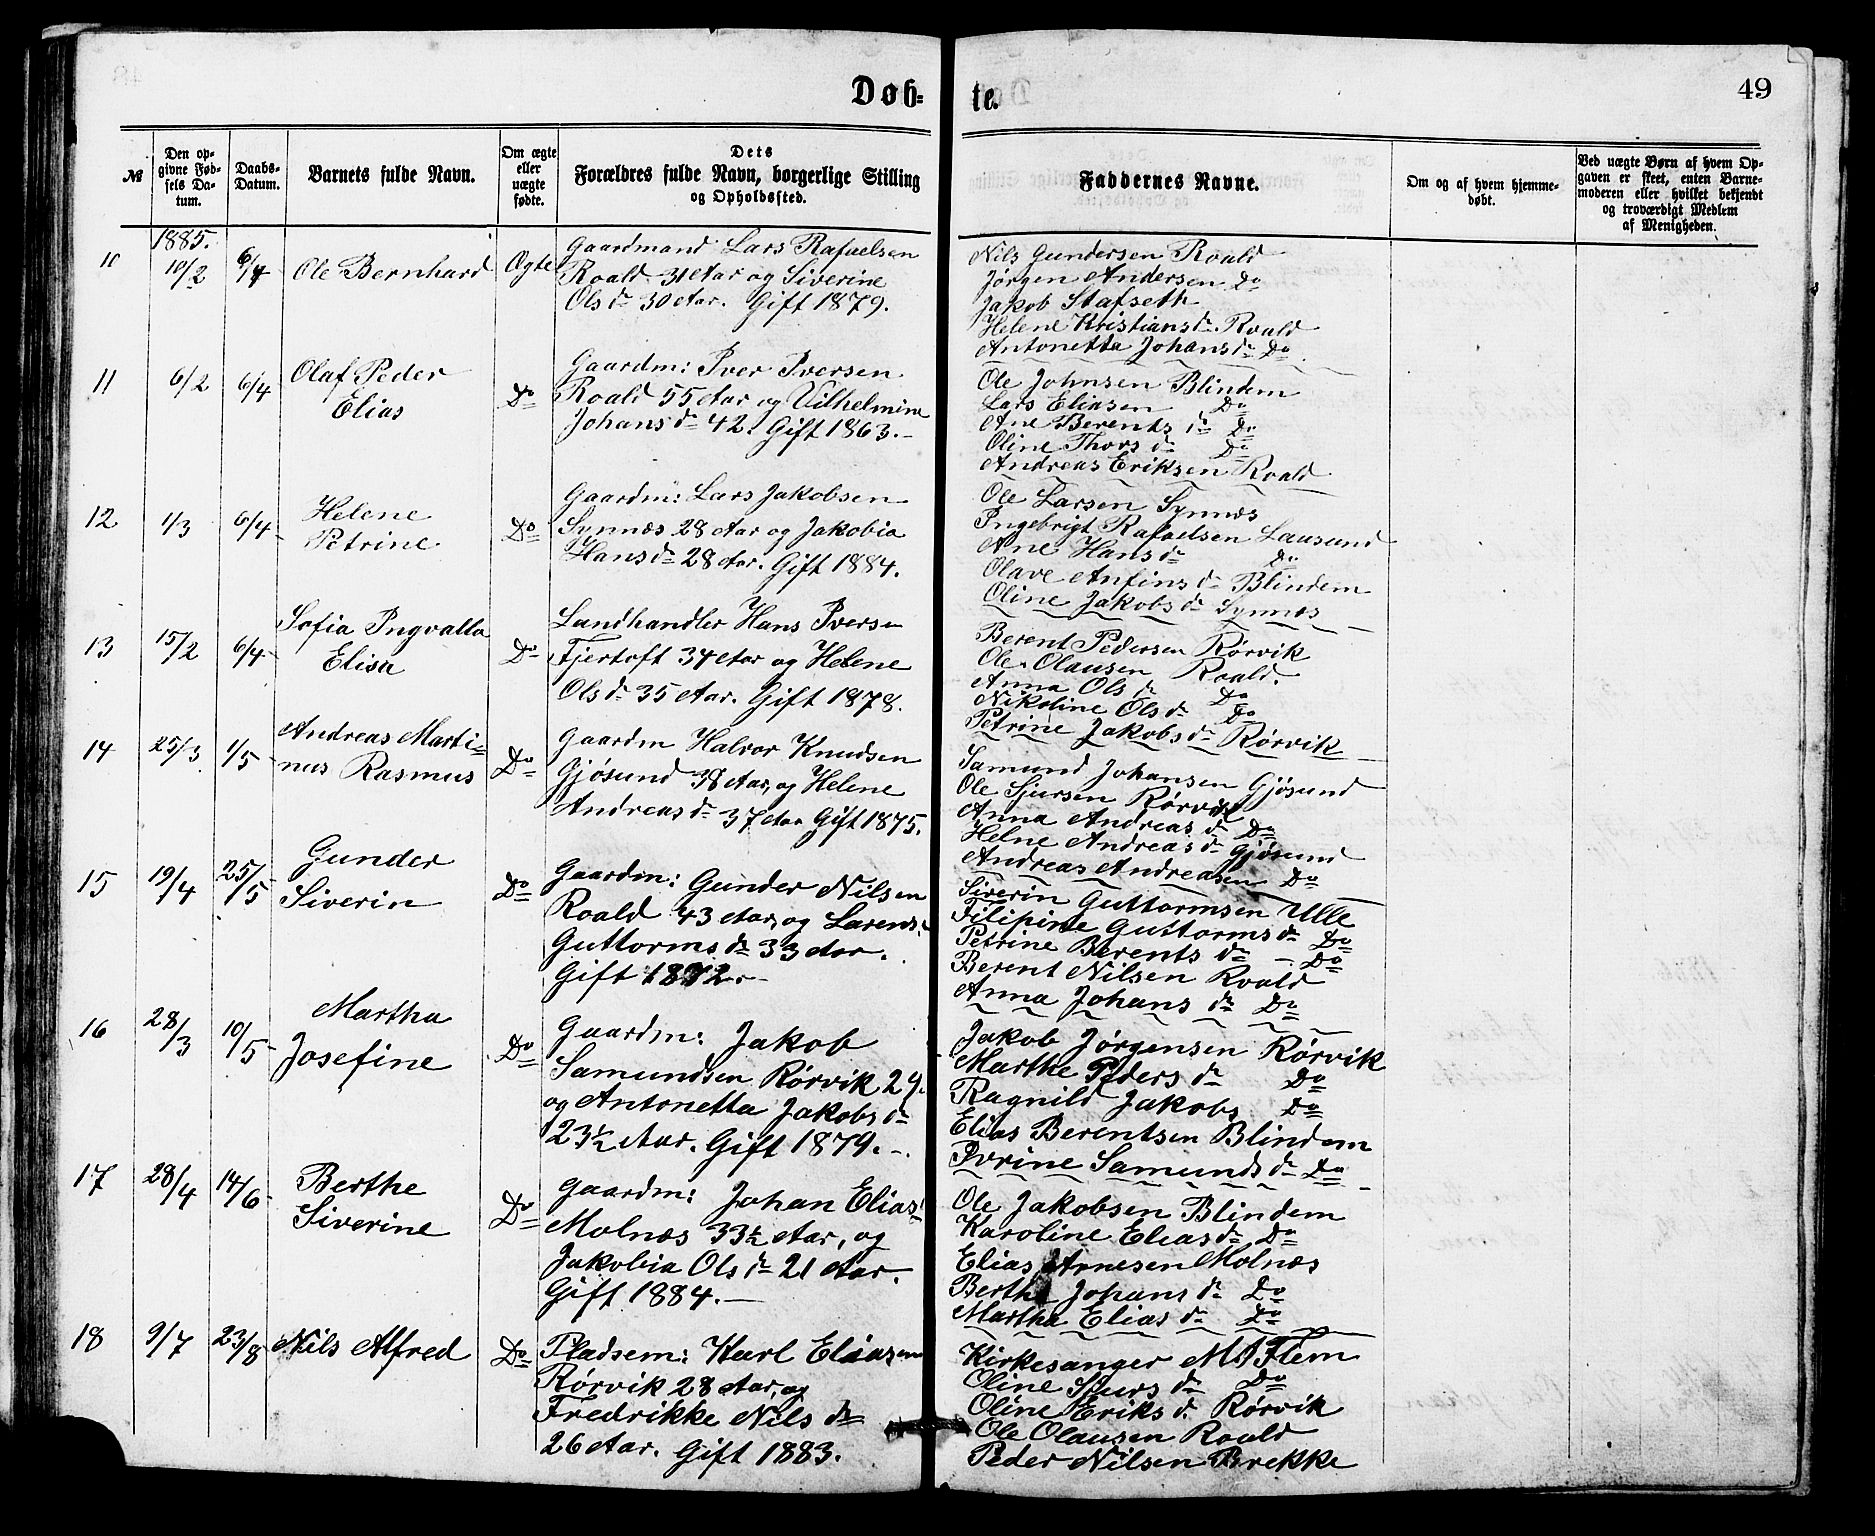 Døb-
te.
49
№
Den op-
givne Fød-
sels Da-
tum.
Daabs-
Datum.
Barnets fulde Navn.
Om ægte
eller
uægte
fødte.
Dets
Forældres fulde Navn, borgerlige Stilling
og Opholdssted.
Faddernes Navne.
Om og af hvem hjemme-
døbt.
Ved uægte Børn af hvem Op-
gaven er skeet, enten Barne-
moderen eller hvilket bekjendt
og troværdigt Medlem
af Menigheden.
1885.
10 10/2 6/4 Ole Bernhard Ægte
Gaardmand Lars Rafaelsen
Roald 31 Aar og Siverine
Ols d. 30 Aar. Gift 1879.
Nils Gundersen Roald
Jørgen Andersen Do
Jakob Stafseth
Helene Kristians d. Roald
Antonetta Johans d. Do
11 6/2 6/4 Olaf Peder
Elias Do
Gaardm: Iver Iversen
Roald 55 Aar og Vilhelmine
Johans d. 42. Gift 1863.-
Ole Johnsen Blindem
Lars Eliasen Do
Ane Berents d. Do
Oline Thors d. Do
Andreas Eriksen Roald
12 1/3 6/4 Helene
Petrine Do
Gaardm: Lars Jakobsen
Synnæs 28 Aar og Jakobia
Hans d. 28 Aar. Gift 1884.
Ole Larsen Synnæs
Ingebrigt Rafaelsen Lausund
Ane Hans d. Do
Olave Anfins d. Blindem
Oline Jakobs d. Synnæs
13 15/2 6/4 Sofia Ingvalla
Elisa Do
Landhandler Hans Iversen
Fjertoft 34 Aar og Helene
Ols d. 35 Aar. Gift 1878.
Berent Pedersen Rørvik
Ole Olausen Roald.
Anna Ols d. Do
Nikoline Ols d. Do
Petrine Jakobs d. Rørvik
14 25/3 1/5 Andreas Marti-
nus Rasmus Do
Gaardm Halvor Knudsen
Gjøsund 38 Aar, og Helene
Andreas d. 37 Aar Gift 1875.
Samund Johansen Gjøsund
Ole Sjursen Rørvik
Anna Andreas d. Do
Helne Andreas d. Gjøsund
Andreas Andreasen Do
15 19/4 25/5 Gunder
Siverin Do
Gaardm: Gunder Nilsen
Roald 43 Aar, og Larens.
Guttorms d. 33 Aar.
Gift 1872.-
Siverin Guttormsen Ulle
Filipine Guttorms d. Do
Petrine Berents d. - Do
Berent Nilsen Roald
Anna Johans d. Do
16 28/3 10/5 Martha
Josefine Do
Gaardm: Jakob
Samundsen Rørvik 29.
og Antonetta Jakobs d.
23½ Aar. Gift 1879.-.
Jakob Jørgensen Rørvik
Marthe Peders d. Do
Ragnild Jakobs Do
Elias Berentsen Blindem
Ivrine Samunds d. Do
17 28/4 14/6 Berthe
Siverine Do
Gaardm: Johan Elias
Molnæs 33½ Aar, og
Jakobia Ols d. 21 Aar.
Gift 1884.-
Ole Jakobsen Blindem
Karoline Elias d. Do
Elias Arnesen Molnæs
Berthe Johans d. Do
Martha Elias d. Do
18 9/7 23/8 Nils Alfred Do
Pladsem: Karl Eliasen
Rørvik 28 Aar, og
Fredrikke Nils d.
26 Aar. Gift 1883.
Kirkesanger M I Flem
Oline Sjurs d. Do
Oline Eriks d. Rørvik
Ole Olausen Roald
Peder Nilsen Brekke